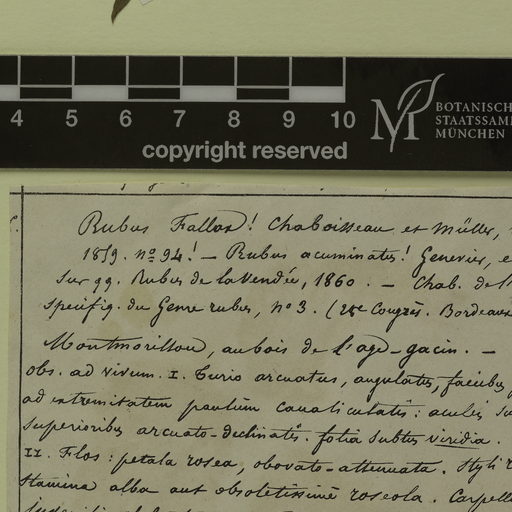 4 5 6 7 8 9 10
copyright reserved
BOTANISCH
STAATSSAM
MÜNCHEN
Rubus Fallax! Chaboisseau et Müller,
1859. nº 94! — Rubus acuminatus! Genevier, e
Sur qq. Rubus de la Vendée, 1860. — Chab. de l'
specifiq. du Genre rubus, nº 3. (28e Congrès. Bordeaux
Montmorillon, au bois de l'age-gacin. —
obs. ad vivum. I. Turio arcuatus, angulatus, faciebus
ad extremitatem paulum canaliculatis: aculei su
superioribus arcuato-declinatis. folia subtus viridia.
II. Flos: petala rosea, obovato-attenuata. Styli r
Stamina alba aut obsoletissime roseola. Carpell